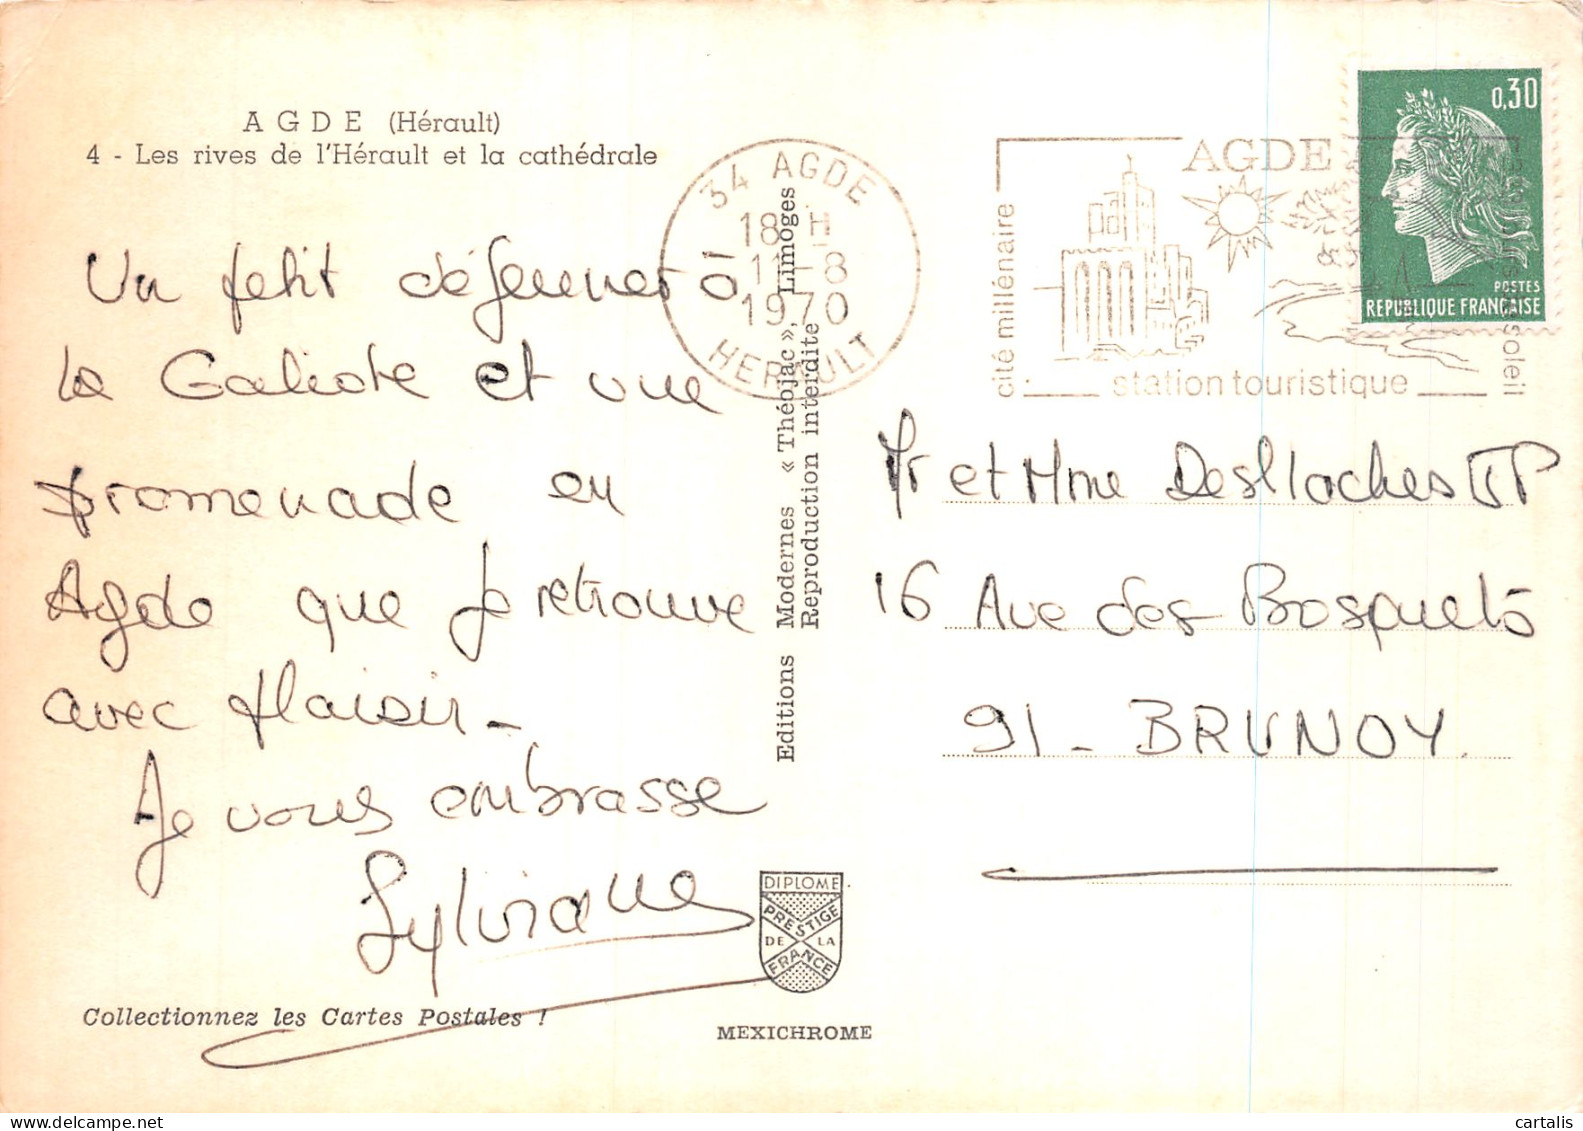 AGDE (Hérault)
4 - Les rives de l'Hérault et la cathédrale
Un petit déjeuner à
la Galiote et une
promenade en
Agde que je retrouve
avec plaisir -
Je vous embrasse
Sylviane
Collectionnez les Cartes Postales !
Editions Modernes « Théojac », Limoges
Reproduction interdite
DIPLOME
PRESTIGE
DE LA
FRANCE
MEXICHROME
34 AGDE
18 H
11-8
1970
HERAULT
AGDE
cité millénaire
station touristique
soleil
0,30
POSTES
REPUBLIQUE FRANÇAISE
Mr et Mme Desllaches JP
16 Ave des Bosquets
91 - BRUNOY.
cartalis